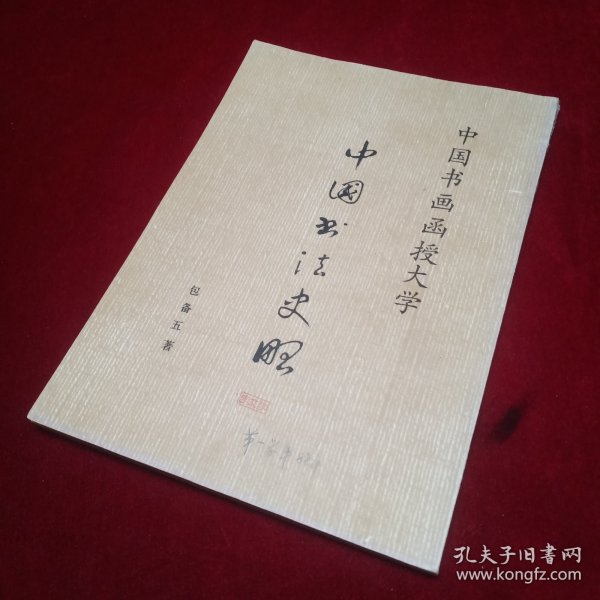 中国书画函授大学
中国书法史略
包备五著
第一学年
孔夫子旧書网
www.kongfz.com